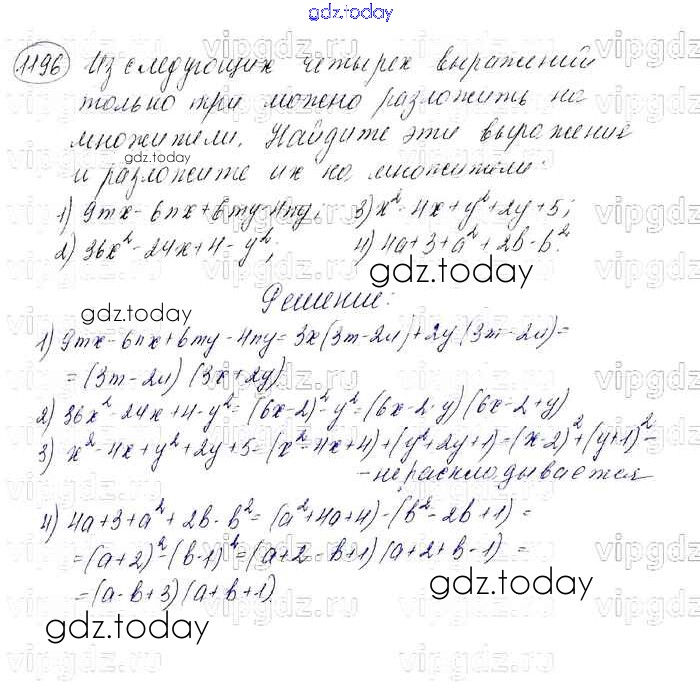 gdz.today
1196 Из следующих четырех выражений
только три можно разложить на
множители. Найдите эти выражения
gdz.today
и разложите их на множители:
1) 9mx - 6nx + 6my - 4ny; 3) x² - 4x + y² + 2y + 5;
2) 36x² - 24x + 4 - y²; 4) 4a + 3 + a² + 2b - b².
gdz.today
Решение:
gdz.today
1) 9mx - 6nx + 6my - 4ny = 3x(3m - 2n) + 2y(3m - 2n) =
= (3m - 2n)(3x + 2y)
2) 36x² - 24x + 4 - y² = (6x - 2)² - y² = (6x - 2 - y)(6x - 2 + y)
3) x² - 4x + y² + 2y + 5 = (x² - 4x + 4) + (y² + 2y + 1) = (x - 2)² + (y + 1)² -
- не раскладывается
4) 4a + 3 + a² + 2b - b² = (a² + 4a + 4) - (b² - 2b + 1) =
= (a + 2)² - (b - 1)² = (a + 2 - b + 1)(a + 2 + b - 1) =
= (a - b + 3)(a + b + 1).
gdz.today
gdz.today
vipgdz